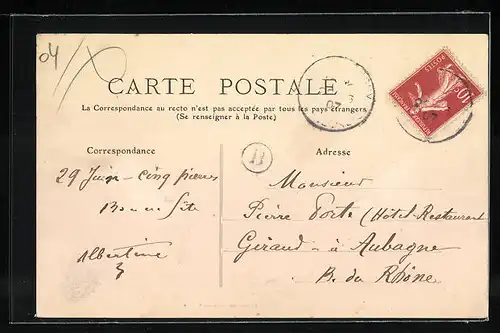 04
CARTE POSTALE
La Correspondance au recto n'est pas acceptée par tous les pays étrangers
(Se renseigner à la Poste)
Correspondance
29 Juin - cinq pierres
Bonne fête
Albertine
Adresse
B
Monsieur
Pierre Porte (Hôtel-Restaurant
Giraud - à Aubagne
B. du Rhône
07
POSTES
10